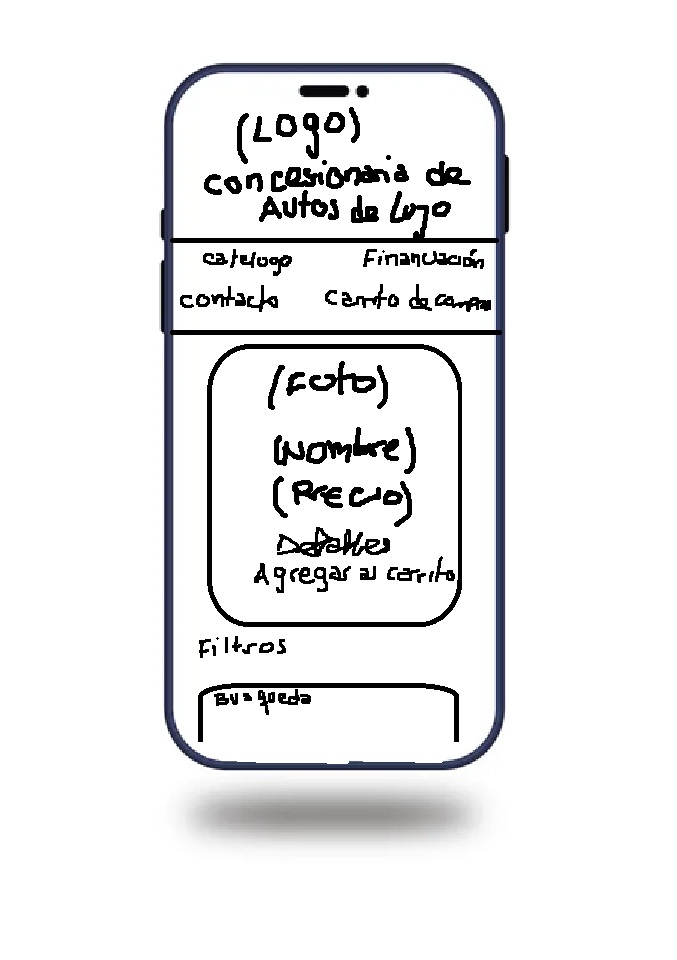 (Logo)
concesionaria de
Autos de lujo
catalogo Financiación
contacto Carrito de compras
(Foto)
(Nombre)
(Precio)
Detalles
Agregar al carrito
Filtros
Busqueda